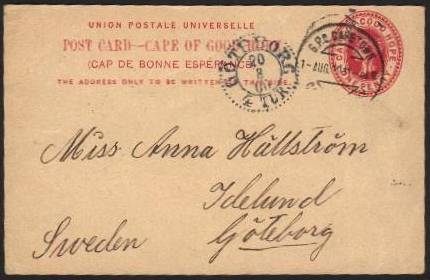 UNION POSTALE UNIVERSELLE
POST CARD—CAPE OF GOOD HOPE
(CAP DE BONNE ESPÉRANCE)
THE ADDRESS ONLY TO BE WRITTEN ON THIS SIDE.
GÖTEBORG
20
8
4 TUR
G.P.O. CAPE TOWN
GOOD HOPE
Miss Anna Hallström
Idelund
Sweden Göteborg